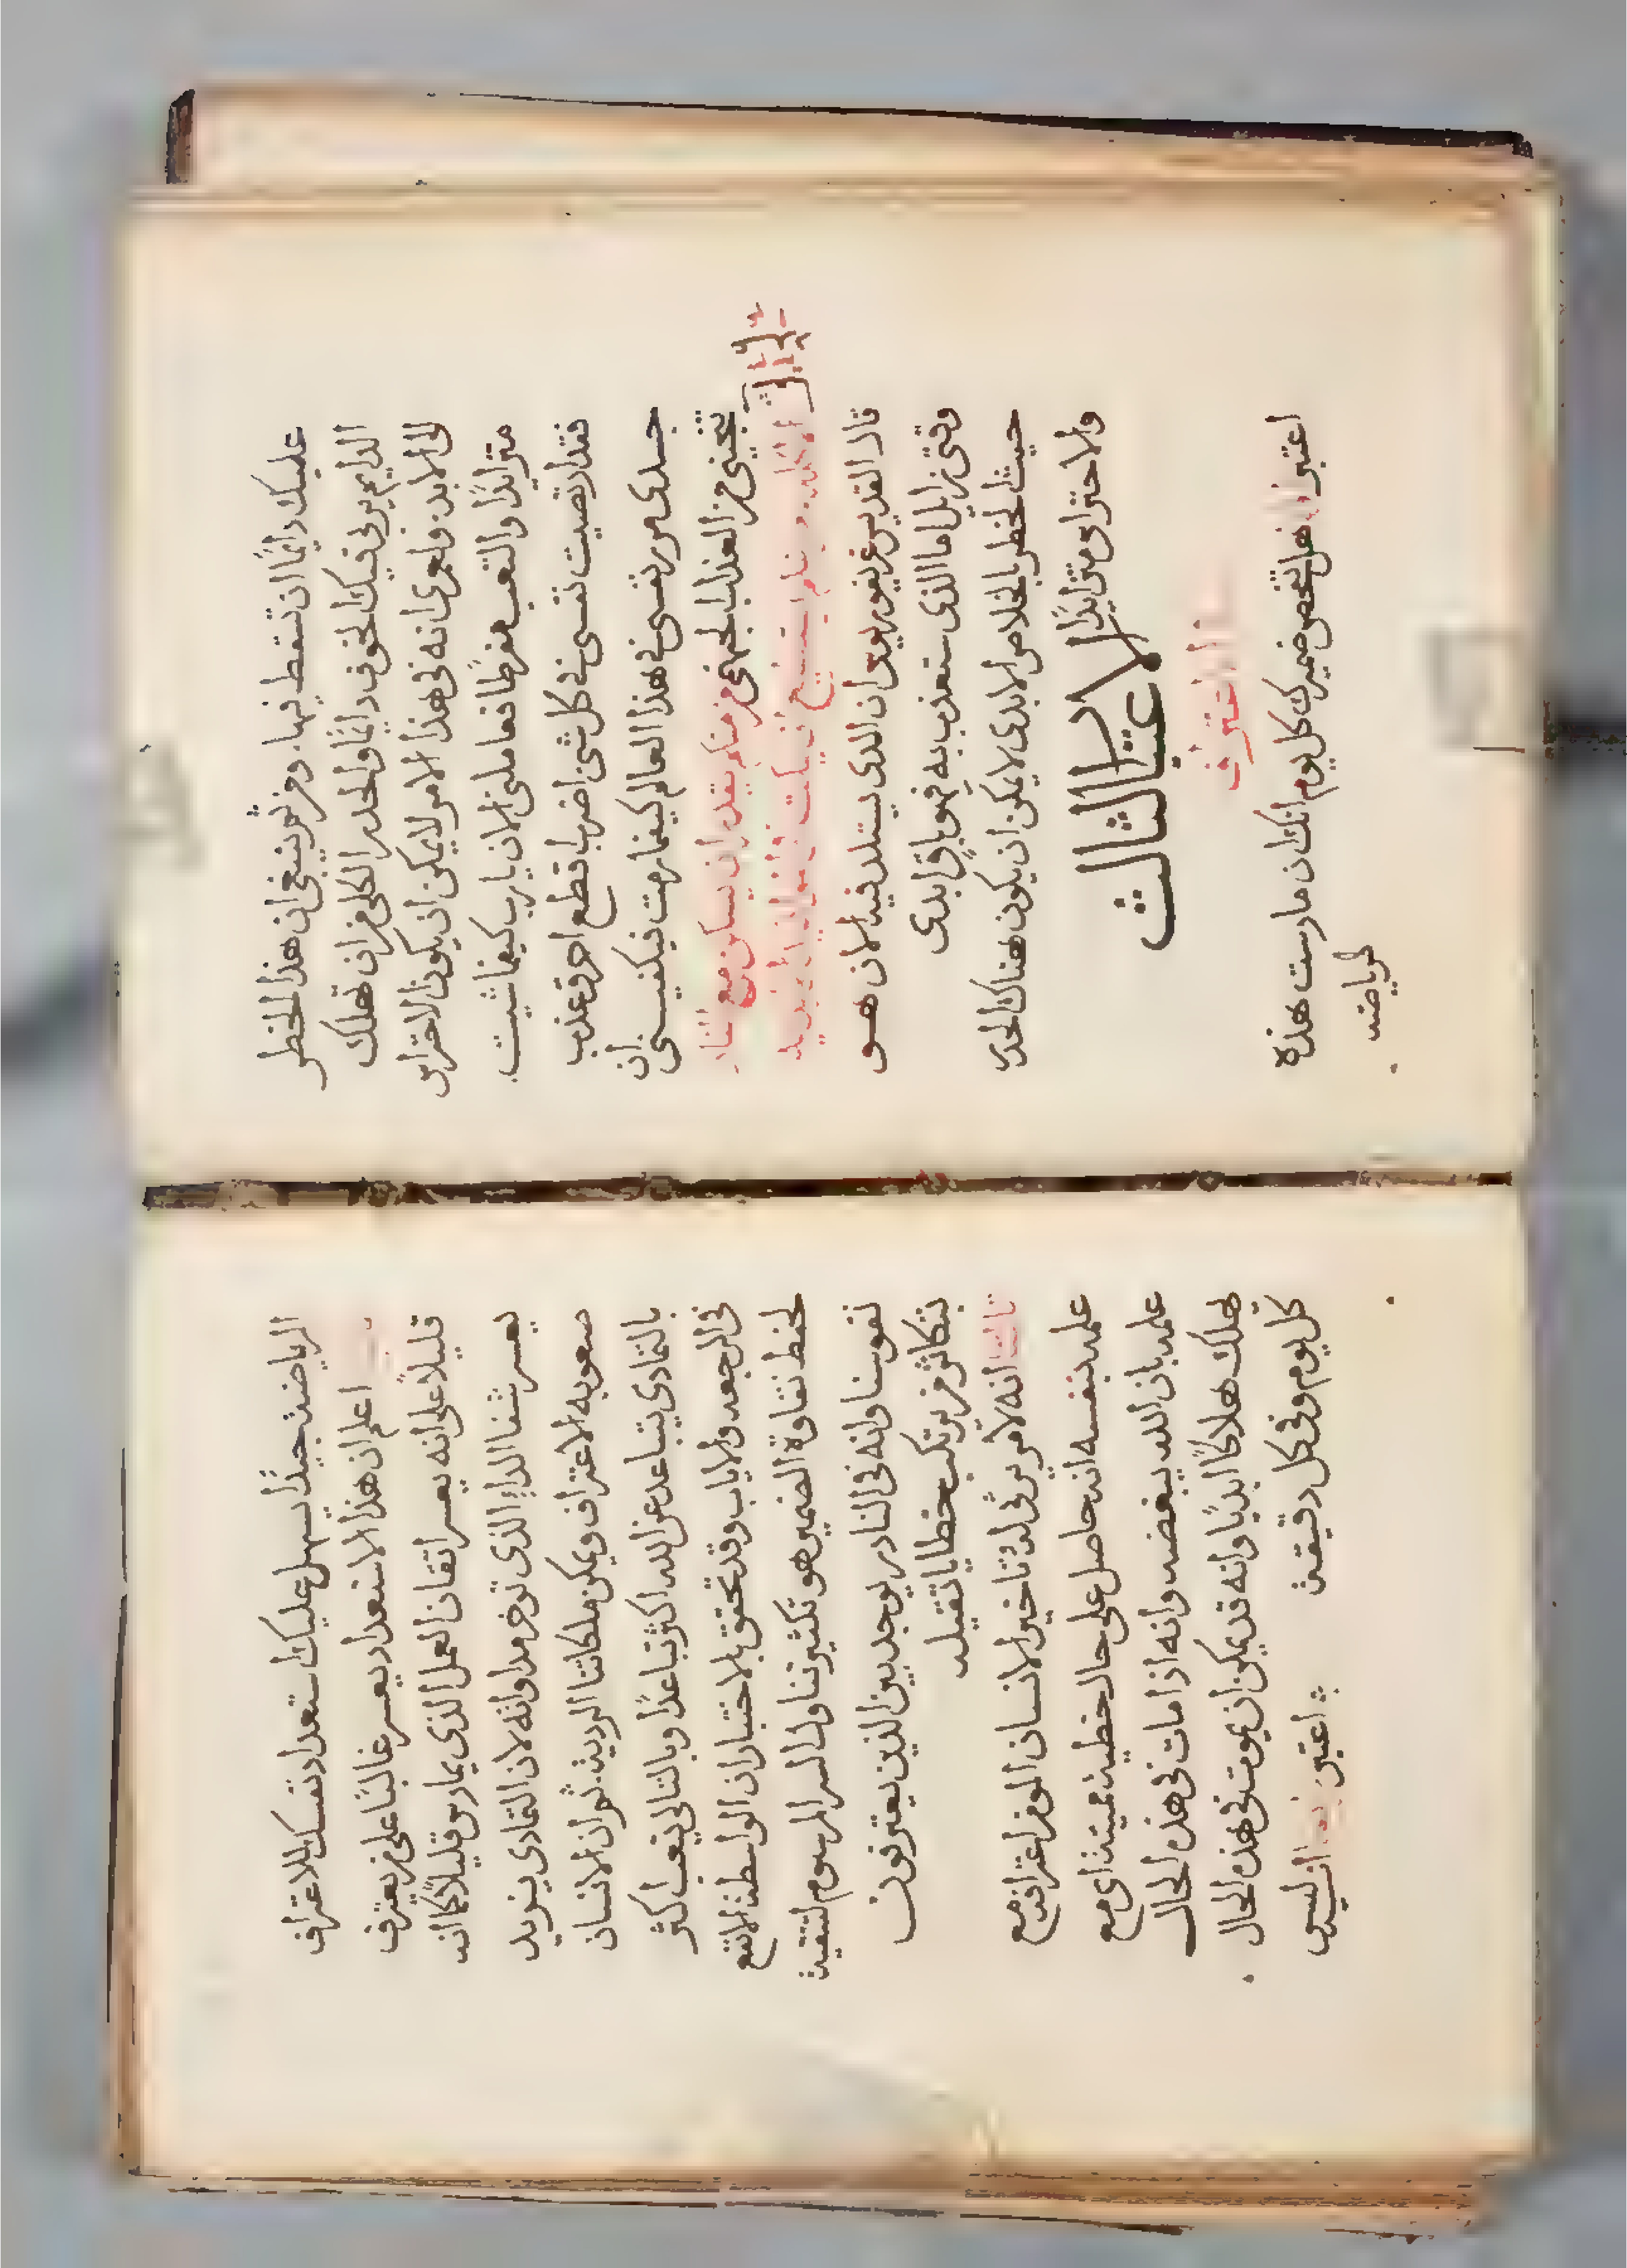 عليك دايمًا ان تسقط فيها. ومن ثم ينبغي ان هذا الخطر
الدايم يربي فيك الخوف دايمًا والحدر الكلي من ان تهلك
الى الابد. ولعمري انه في هذا الامر لا يمكن ان يكون الاحتراس
متزايدًا والتعب مفرطًا فعاملني الان يارب كيفما شيت.
فقد ارتضيت نفسي في كل شي اضرب اقطع احرق عذب
جسدي مرمر نفسي في هذا العالم كيفما رمت فيكفيني ان
تنجيني من العذاب الجهنمي من منكم يقدر ان يسكن مع النار
الاكله. ومن منكم يستطيع ان يمكث
قال القديس غريغوريوس ان الدي يستلد فيه الان هو
وقتي زايل اما الذي ستعذب به فهو باقٍ ابدي
حيث الخطر بالخلاص الابدي لا يمكن ان يكون هناك الحدر
والاحتراس متزايدًا
الاعتبار الثالث
في الاعتراف
اعتبر اولا هل تفحص ضميرك كل يوم لانك ان مارست هذه
الرياضه
الرياضة جيدًا يسهل عليك استعداد نفسك للاعتراف
اعلم ان هذا الاستعداد يعسر غالبًا على من يعترف
قليلًا على انه يعسر اتقان العمل الذي يمارس قليلًا كما انه
يعسر شفا الداء الذي توخر مداواته لان التمادي يزيد
صعوبه الاعتراف ويمكن ملكاتنا الرديه. ثم ان الانسان
بالتمادي يتباعد عن الله اكثر تباعدًا وبالتالي يتعب اكثر
في الرجعه والاياب وقد تحقق بالاختبار ان الواسطة الانفع
لحفظ نقاوة الضمير هو تكثير تناول السر المرسوم لتنقية
نفوسنا وانه في النادر يوجد بين الذين يعترفون
بتكاثر من يرتكب خطايا ثقيله
ثالثا انه لامر يرثى له تاخير الانسان المومن اعترافه مع
علمه بنفسه انه حاصل على حال خطية مميتة اي مع
علمه بان الله يبغضه وانه اذا مات في هذه الحال
هلك هلاكًا ابديًا وانه قد يمكن ان يموت في هذه الحال
كل يوم وفي كل دقيقة اعتبر اليس